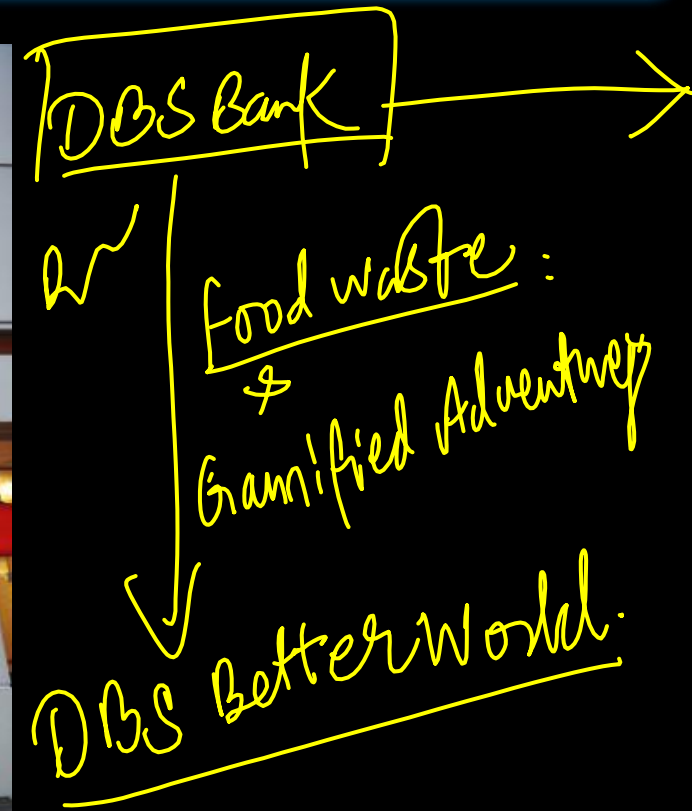 DBS Bank
Food waste :
&
Gamified Adventures
DBS BetterWorld.